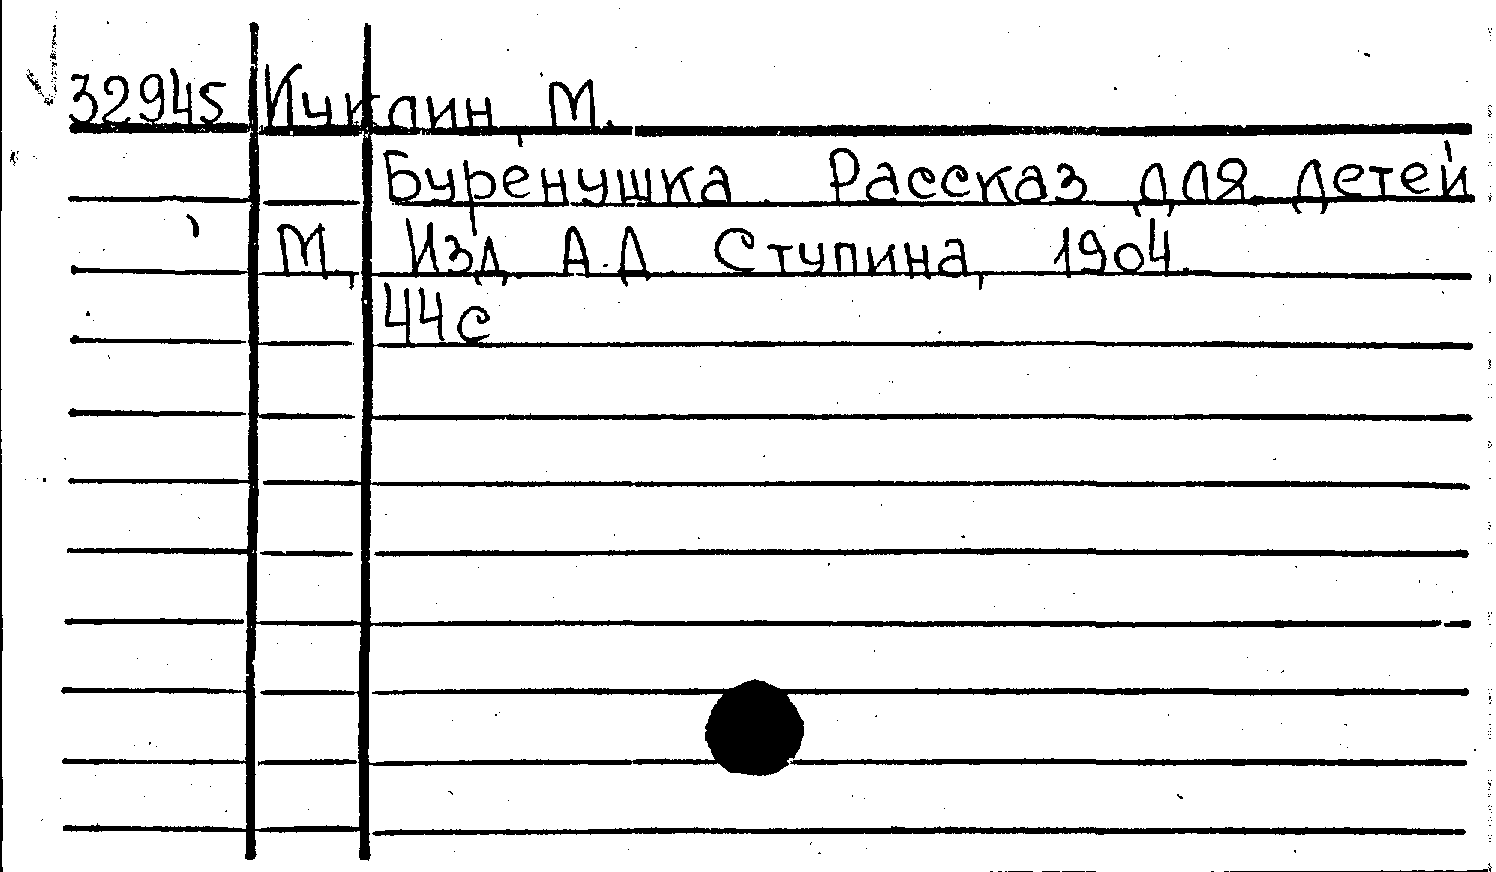 32945 Ичклин, М.
Буренушка. Рассказ для детей
М, Изд. А.Д. Ступина, 1904.
44с